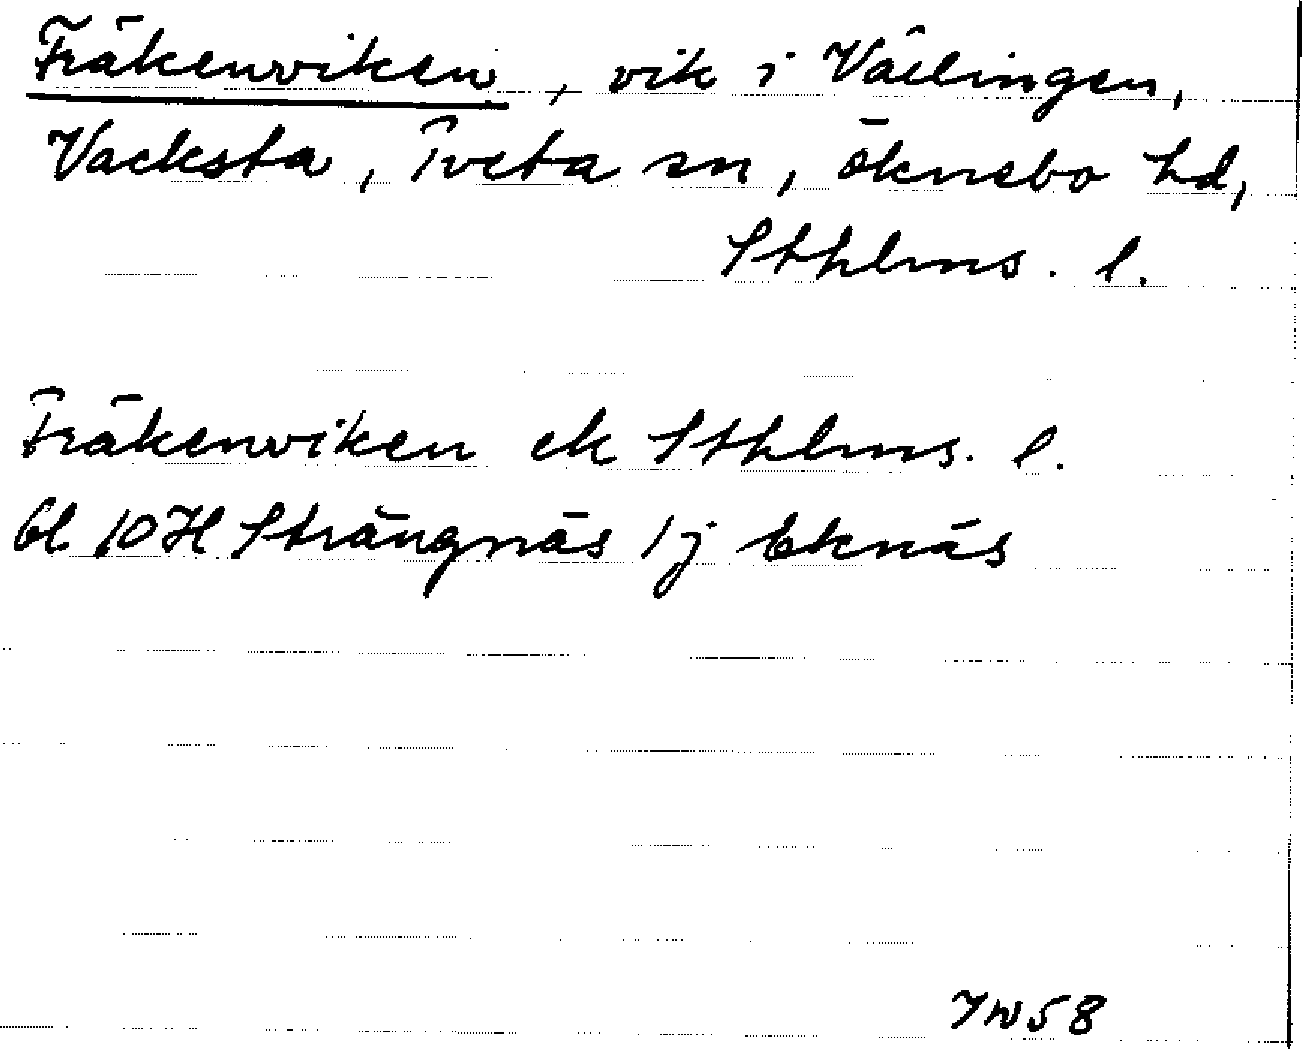 Fräkenviken, vik i Vällingen,
Vacksta, Tveta sn, Öknebo hd,
Sthlms. l.
Fräkenviken ek Sthlms. l.
bl 10H Strängnäs 1j Eknäs
58